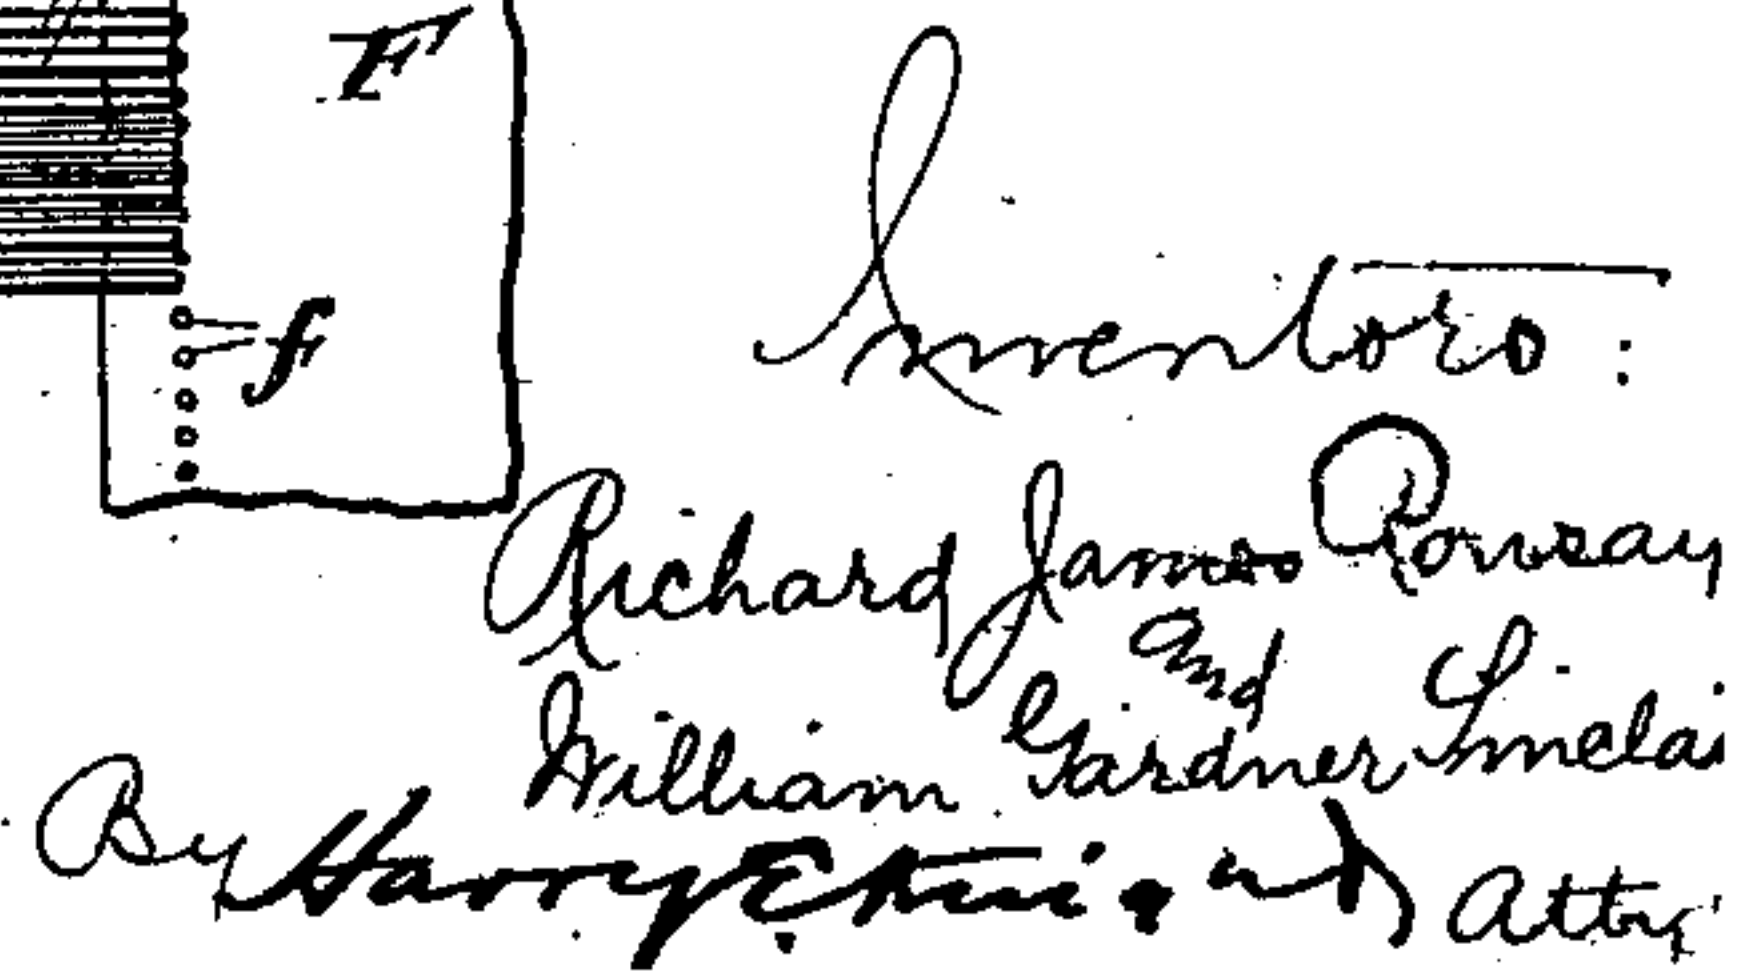 F
f
Inventors:
Richard James Rowsay
and
William Gardner Sinclai
By Harry E. Atty